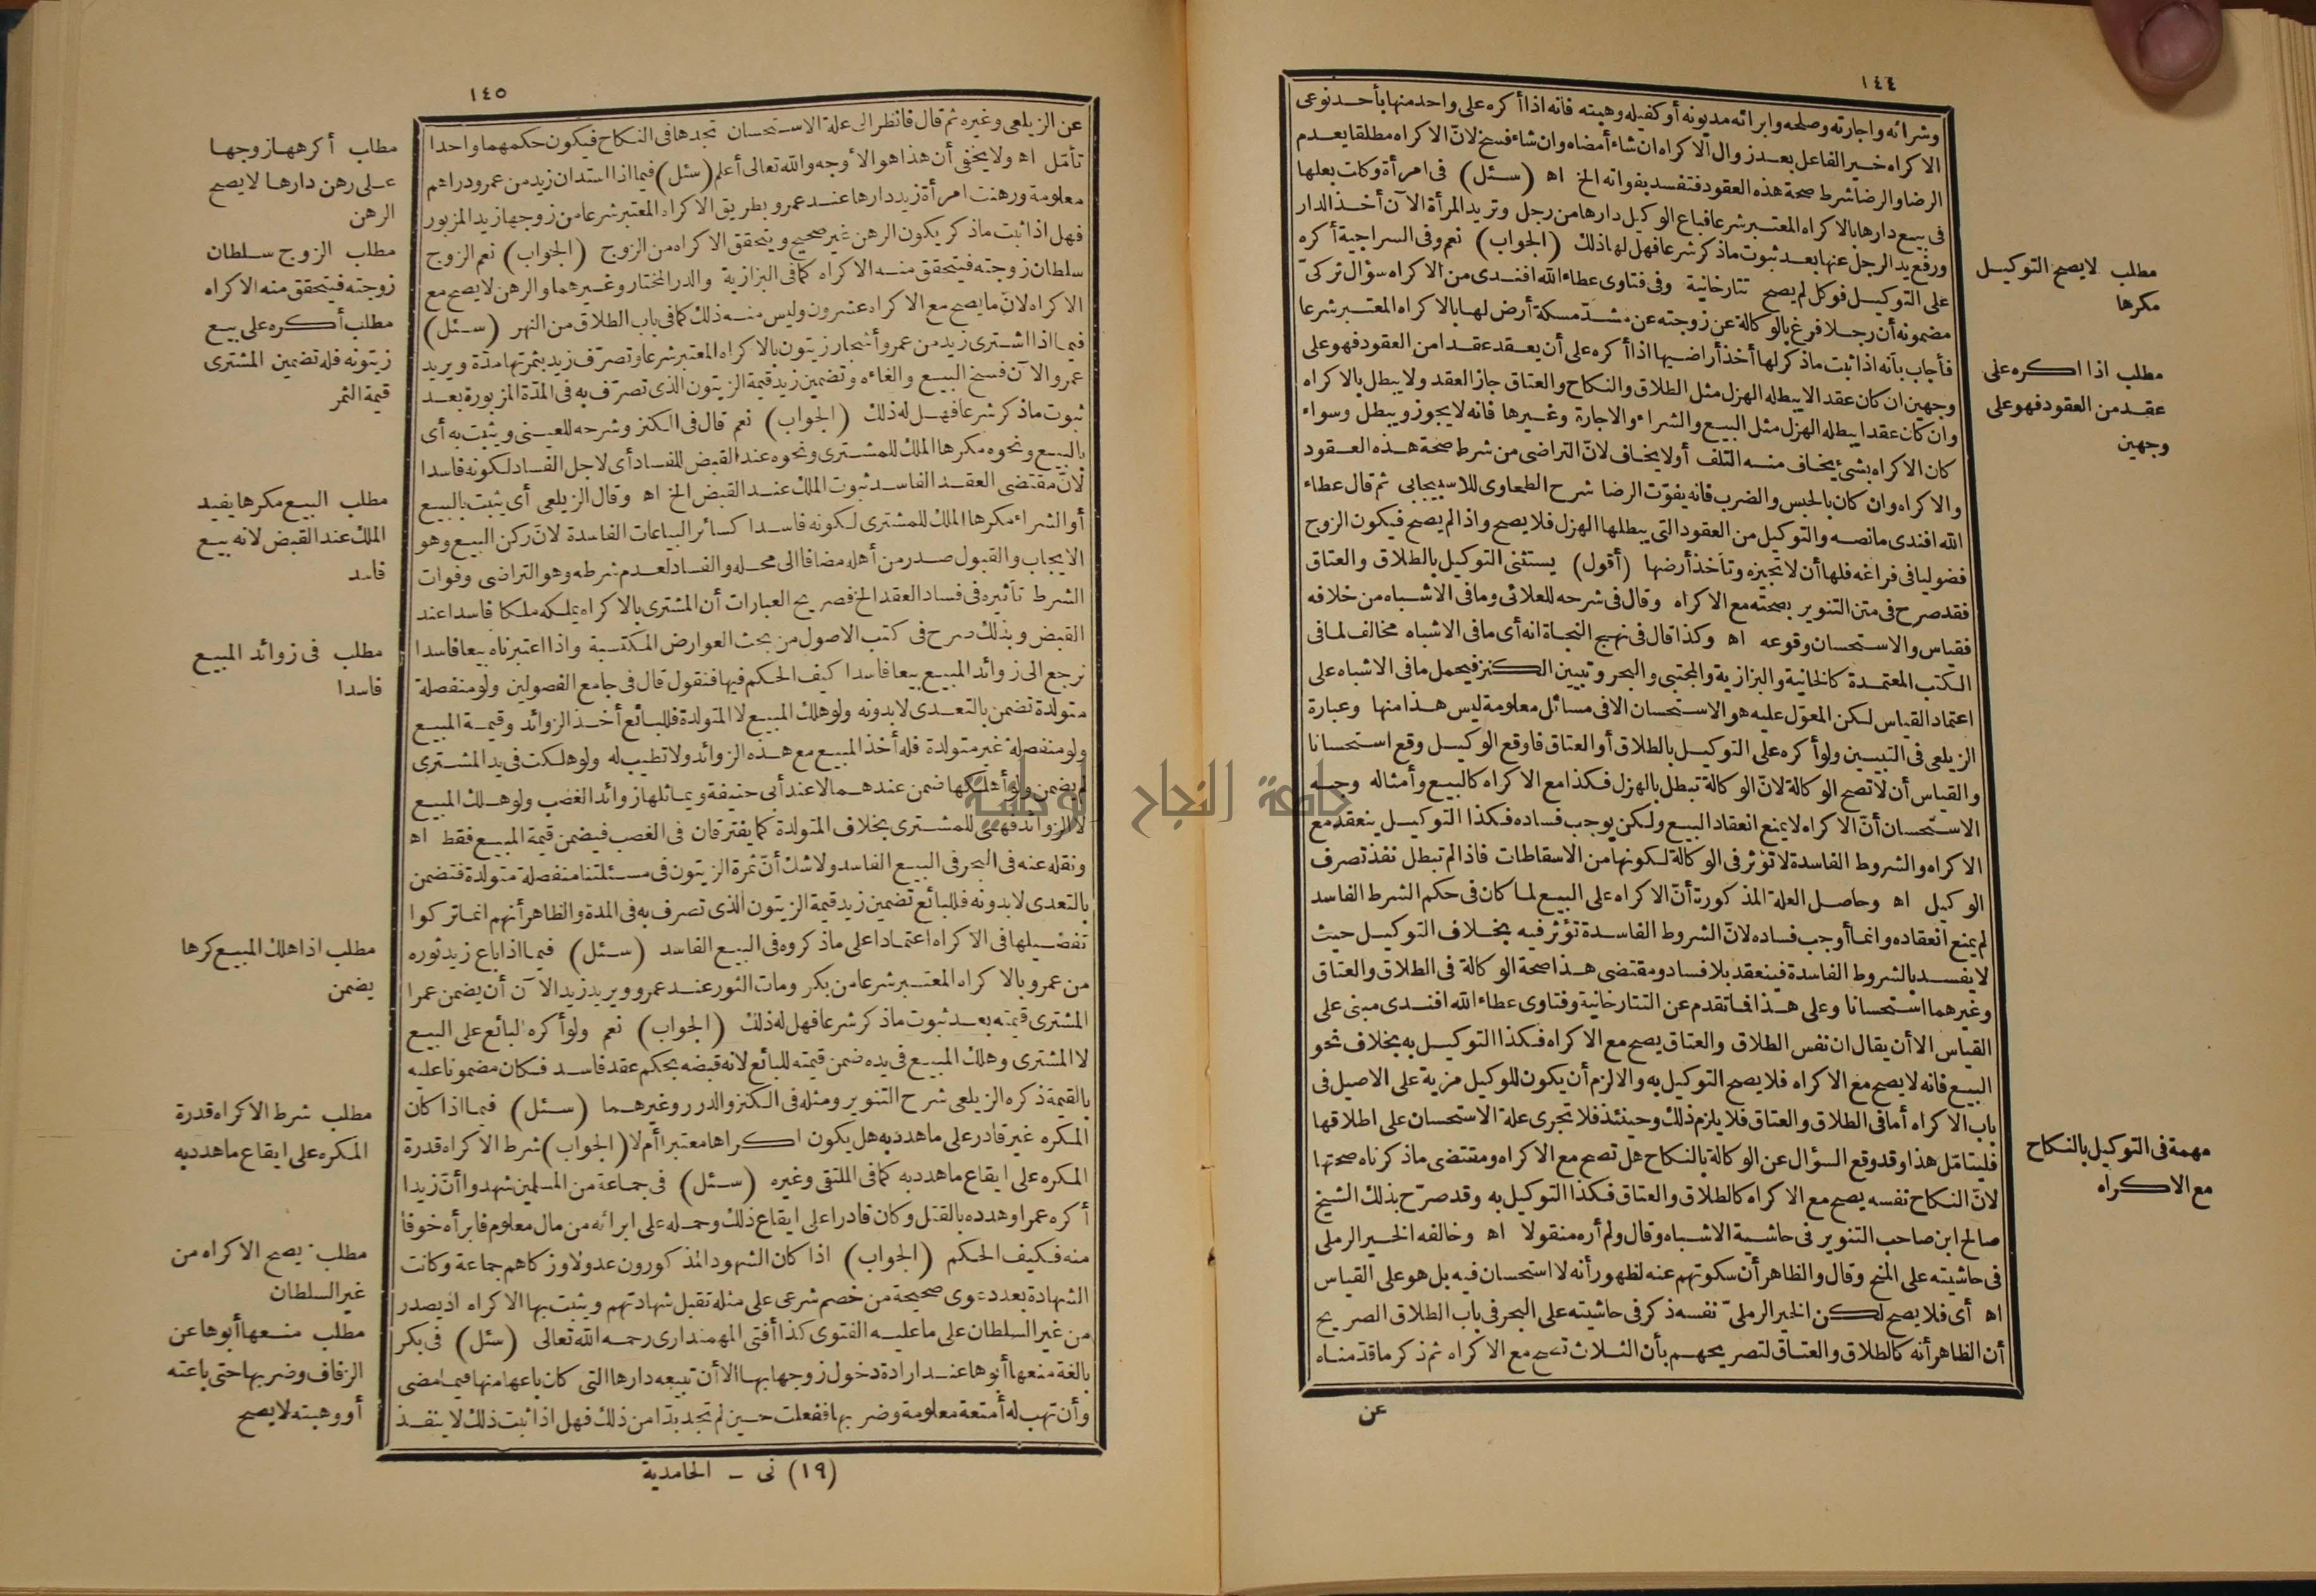 ١٤٤
وشرائه واجارته وصلحه وابرائه مديونه أو كفيله وهبته فانه اذا أكره على واحد منها بأحد نوعى
الاكراه خير الفاعل بعد زوال الاكراه ان شاء أمضاه وان شاء فسخ لانّ الاكراه مطلقا يعدم
الرضا والرضا شرط صحة هذه العقود فتفسد بفواته الخ اه (سئل) فى امرأة وكلت بعلها
فى بيع دارها بالاكراه المعتبر شرعا فباع الوكيل دارها من رجل وتريد المرأة الآن أخذ الدار
ورفع يد الرجل عنها بعد ثبوت ماذكر شرعا فهل لها ذلك (الجواب) نعم وفى السراجية أكره
على التوكيل فوكل لم يصح تتارخانية وفى فتاوى عطاء الله افندى من الاكراه سؤال تركىّ
مضمونه أن رجلا فرغ بالوكالة عن زوجته عن مشدّ مسكة أرض لها بالاكراه المعتبر شرعا
فأجاب بأنه اذا ثبت ماذكر لها أخذ أراضيها اذا أكره على أن يعقد عقدا من العقود فهو على
وجهين ان كان عقدا لايبطله الهزل مثل الطلاق والنكاح والعتاق جاز العقد ولا يبطل بالاكراه
وان كان عقدا يبطله الهزل مثل البيع والشراء والاجارة وغيرها فانه لايجوز ويبطل وسواء
كان الاكراه بشئ يخاف منه التلف أولا يخاف لانّ التراضى من شرط صحة هذه العقود
والاكراه وان كان بالحبس والضرب فانه يفوّت الرضا شرح الطحاوى للاسبيجابى ثم قال عطاء
الله افندى مانصه والتوكيل من العقود التى يبطلها الهزل فلا يصح واذا لم يصح فيكون الزوج
فضوليا فى فراغه فلها أن لا تجيزه وتأخذ أرضها (أقول) يستثنى التوكيل بالطلاق والعتاق
فقد صرح فى متن التنوير بصحته مع الاكراه وقال فى شرحه للعلائى ومافى الاشباه من خلافه
فقياس والاستحسان وقوعه اه وكذا قال فى نهج النجاة انه أى مافى الاشباه مخالف لما فى
الكتب المعتمدة كالخانية والبزازية والمجتبى والبحر وتبيين الكنز فيحمل مافى الاشباه على
اعتماد القياس لكن المعوّل عليه هو الاستحسان الا فى مسائل معلومة ليس هذا منها وعبارة
الزيلعى فى التبيين ولو أكره على التوكيل بالطلاق أو العتاق فأوقع الوكيل وقع استحسانا
والقياس أن لا تصح الوكالة لانّ الوكالة تبطل بالهزل فكذا مع الاكراه كالبيع وأمثاله وجه
الاستحسان أنّ الاكراه لا يمنع انعقاد البيع ولكن يوجب فساده فكذا التوكيل ينعقد مع
الاكراه والشروط الفاسدة لا تؤثر فى الوكالة لكونها من الاسقاطات فاذا لم تبطل نفذ تصرف
الوكيل اه وحاصل العلة المذكورة أنّ الاكراه على البيع لما كان فى حكم الشرط الفاسد
لم يمنع انعقاده وانما أوجب فساده لانّ الشروط الفاسدة تؤثر فيه بخلاف التوكيل حيث
لا يفسد بالشروط الفاسدة فينعقد بلا فساد ومقتضى هذا صحة الوكالة فى الطلاق والعتاق
وغيرهما استحسانا وعلى هذا فما تقدم عن التتارخانية وفتاوى عطاء الله افندى مبنى على
القياس الا أن يقال ان نفس الطلاق والعتاق يصح مع الاكراه فكذا التوكيل به بخلاف نحو
البيع فانه لا يصح مع الاكراه فلا يصح التوكيل به والا لزم أن يكون للوكيل مزية على الاصيل فى
باب الاكراه أما فى الطلاق والعتاق فلا يلزم ذلك وحينئذ فلا تجرى علة الاستحسان على اطلاقها
فليتأمّل هذا وقد وقع السؤال عن الوكالة بالنكاح هل تصح مع الاكراه ومقتضى ماذكرناه صحتها
لانّ النكاح نفسه يصح مع الاكراه كالطلاق والعتاق فكذا التوكيل به وقد صرّح بذلك الشيخ
صالح ابن صاحب التنوير فى حاشية الاشباه وقال ولم أره منقولا اه وخالفه الخير الرملى
فى حاشيته على المنح وقال والظاهر أن سكوتهم عنه لظهور أنه لا استحسان فيه بل هو على القياس
اه أى فلا يصح لكن الخير الرملىّ نفسه ذكر فى حاشيته على البحر فى باب الطلاق الصريح
أن الظاهر أنه كالطلاق والعتاق لتصريحهم بأن الثلاث تصح مع الاكراه ثم ذكر ماقدّمناه
عن
مطلب لايصح التوكيل
مكرها
مطلب اذا اكره على
عقد من العقود فهو على
وجهين
مهمة فى التوكيل بالنكاح
مع الاكراه
١٤٥
عن الزيلعى وغيره ثم قال فانظر الى علة الاستحسان تجدها فى النكاح فيكون حكمهما واحدا
تأمّل اه ولا يخفى أن هذا هو الأوجه والله تعالى أعلم (سئل) فيما اذا استدان زيد من عمرو دراهم
معلومة ورهنت امرأة زيد دارها عند عمرو بطريق الاكراه المعتبر شرعا من زوجها زيد المزبور
فهل اذا ثبت ماذكر يكون الرهن غير صحيح ويتحقق الاكراه من الزوج (الجواب) نعم الزوج
سلطان زوجته فيتحقق منه الاكراه كما فى البزازية والدر المختار وغيرهما والرهن لا يصح مع
الاكراه لانّ ما يصح مع الاكراه عشرون وليس منه ذلك كما فى باب الطلاق من النهر (سئل)
فيما اذا اشترى زيد من عمرو أشجار زيتون بالاكراه المعتبر شرعا وتصرّف زيد بثمرتها مدّة ويريد
عمرو الآن فسخ البيع والغاءه وتضمين زيد قيمة الزيتون الذى تصرّف به فى المدّة المزبورة بعد
ثبوت ماذكر شرعا فهل له ذلك (الجواب) نعم قال فى الكنز وشرحه للعينى ويثبت به أى
بالبيع ونحوه مكرها الملك للمشترى ونحوه عند القبض للفساد أى لاجل الفساد لكونه فاسدا
لانّ مقتضى العقد الفاسد ثبوت الملك عند القبض الخ اه وقال الزيلعى أى يثبت بالبيع
أو الشراء مكرها الملك للمشترى لكونه فاسدا كسائر البياعات الفاسدة لانّ ركن البيع وهو
الايجاب والقبول صدر من أهله مضافا الى محله والفساد لعدم شرطه وهو التراضى وفوات
الشرط تأثيره فى فساد العقد الخ فصريح العبارات أن المشترى بالاكراه يملكه ملكا فاسدا عند
القبض وبذلك صرح فى كتب الاصول من بحث العوارض المكتسبة واذا اعتبرناه بيعا فاسدا
نرجع الى زوائد المبيع بيعا فاسدا كيف الحكم فيها فنقول قال فى جامع الفصولين ولو منفصلة
متولدة تضمن بالتعدى لا بدونه ولو هلك المبيع لا المتولدة فللبائع أخذ الزوائد وقيمة المبيع
ولو منفصلة غير متولدة فله أخذ المبيع مع هذه الزوائد ولا تطيب له ولو هلكت فى يد المشترى
لم يضمن ولو أهلكها ضمن عندهما لا عند أبى حنيفة ويماثلها زوائد الغصب ولو هلك المبيع
لا الزوائد فهى للمشترى بخلاف المتولدة كما يفترقان فى الغصب فيضمن قيمة المبيع فقط اه
ونقله عنه فى البحر فى البيع الفاسد ولاشك أنّ ثمرة الزيتون فى مسئلتنا منفصلة متولدة فتضمن
بالتعدى لا بدونه فللبائع تضمين زيد قيمة الزيتون الذى تصرف به فى المدة والظاهر أنهم انما تركوا
تفصيلها فى الاكراه اعتمادا على ماذكروه فى البيع الفاسد (سئل) فيما اذا باع زيد ثوره
من عمرو بالاكراه المعتبر شرعا من بكر ومات الثور عند عمرو ويريد زيد الآن أن يضمن عمرا
المشترى قيمته بعد ثبوت ماذكر شرعا فهل له ذلك (الجواب) نعم ولو أكره البائع على البيع
لا المشترى وهلك المبيع فى يده ضمن قيمته للبائع لانه قبضه بحكم عقد فاسد فكان مضمونا عليه
بالقيمة ذكره الزيلعى شرح التنوير ومثله فى الكنز والدرر وغيرهما (سئل) فيما اذا كان
المكره غير قادر على ماهدد به هل يكون اكراها معتبرا أم لا (الجواب) شرط الاكراه قدرة
المكره على ايقاع ماهدد به كما فى الملتقى وغيره (سئل) فى جماعة من المسلمين شهدوا أنّ زيدا
أكره عمرا وهدده بالقتل وكان قادرا على ايقاع ذلك وحمله على ابرائه من مال معلوم فابرأه خوفا
منه فكيف الحكم (الجواب) اذا كان الشهود المذكورون عدولا وزكاهم جماعة وكانت
الشهادة بعد دعوى صحيحة من خصم شرعى على مثله تقبل شهادتهم ويثبت بها الاكراه اذ يصدر
من غير السلطان على ما عليه الفتوى كذا أفتى المهمندارى رحمه الله تعالى (سئل) فى بكر
بالغة منعها أبوها عند ارادة دخول زوجها بها الا أن تبيعه دارها التى كان باعها منها فيما مضى
وأن تهب له أمتعة معلومة وضربها ففعلت حين لم تجد بدّا من ذلك فهل اذا ثبت ذلك لا ينفذ
(١٩) نى - الحامدية
مطلب أكرهها زوجها
على رهن دارها لا يصح
الرهن
مطلب الزوج سلطان
زوجته فيتحقق منه الاكراه
مطلب أكره على بيع
زيتونه فله تضمين المشترى
قيمة الثمر
مطلب البيع مكرها يفيد
الملك عند القبض لانه بيع
فاسد
مطلب فى زوائد المبيع
فاسدا
مطلب اذا هلك المبيع كرها
يضمن
مطلب شرط الاكراه قدرة
المكره على ايقاع ماهدد به
مطلب يصح الاكراه من
غير السلطان
مطلب منعها أبوها عن
الزفاف وضربها حتى باعته
أو وهبته لا يصح
جامعة النجاح الوطنية